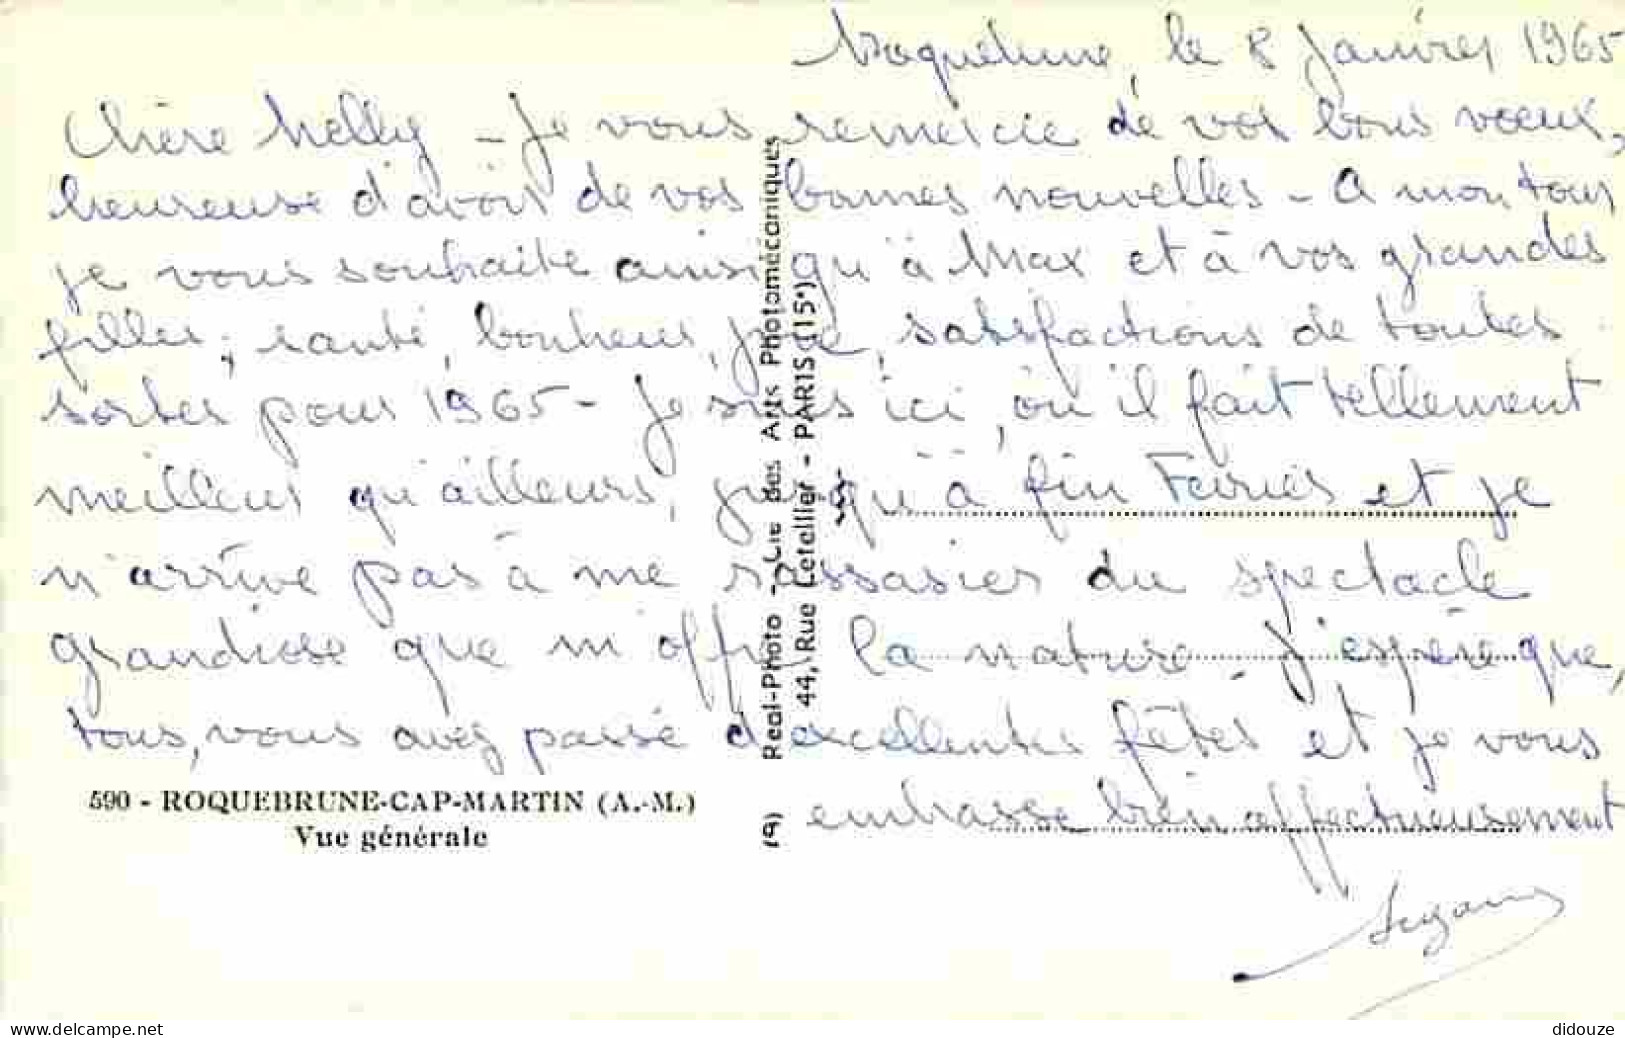 Roquebrune, le 8 Janvier 1965
Chère Nelly - Je vous remercie de vos bons voeux,
heureuse d'avoir de vos bonnes nouvelles - A mon tour
je vous souhaite ainsi qu'à Max et à vos grandes
filles, santé, bonheur, joie, satisfactions de toutes
sortes pour 1965 - Je suis ici, où il fait tellement
meilleur qu'ailleurs, jusqu'à fin Février et je
n'arrive pas à me rassasier du spectacle
grandiose que m'offre la nature. J'espère que,
tous, vous avez passé d'excellentes fêtes et je vous
embrasse bien affectueusement
Suzanne
590 - ROQUEBRUNE-CAP-MARTIN (A.-M.)
Vue générale
(9) Real-Photo - Cie des Arts Photomécaniques
44, Rue Letellier - PARIS (15e)
delcampe.net
didouze